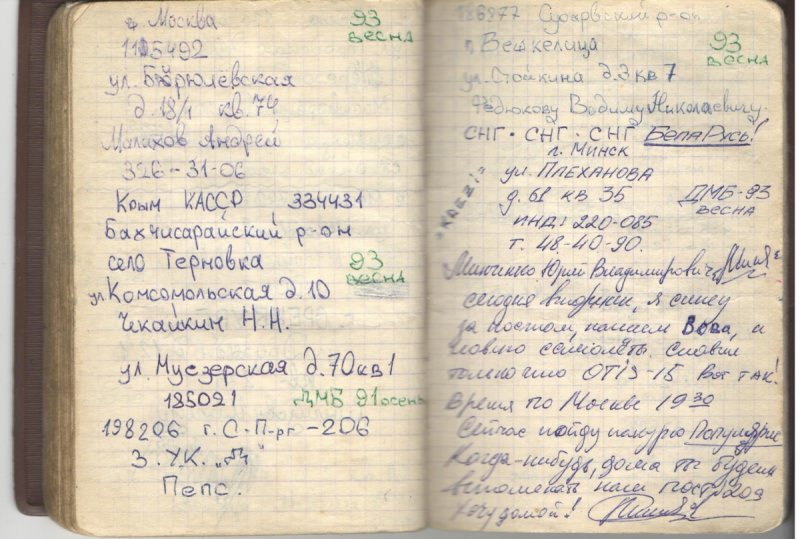 г. Москва 93
весна
115492
ул. Бирюлевская
д. 18/1 кв. 74
Малахов Андрей
326-31-06
Крым КАССР 334431
Бахчисарайский р-он
село Терновка 93
весна
ул Комсомольская д. 10
Чекайкин Н.Н.
ул. Муезерская д. 70 кв 1
185021 ДМБ 91 осень
198206 г. С-П-рг - 206
З. У.К.
Пепс.
186877 Суоярвский р-он
п Вешкелица 93
весна
ул. Стойкина д. 3 кв 7
Федюкову Вадиму Николаевичу.
СНГ • СНГ • СНГ БелаРусь!
г. Минск
ул. Плеханова
д. 61 кв 35 ДМБ-93
весна
инд: 220-085
т. 48-40-90.
Минченко Юрий Владимирович
сегодня вторник, я сижу
за постом, пашем Вова, и
ловлю самолёты. Словил
только что ОТ13-15. Вот так!
Время по Москве 19 30
Сейчас пойду покурю
Когда-нибудь, дома ты будешь
вспоминать наш пост 209
хочу домой!